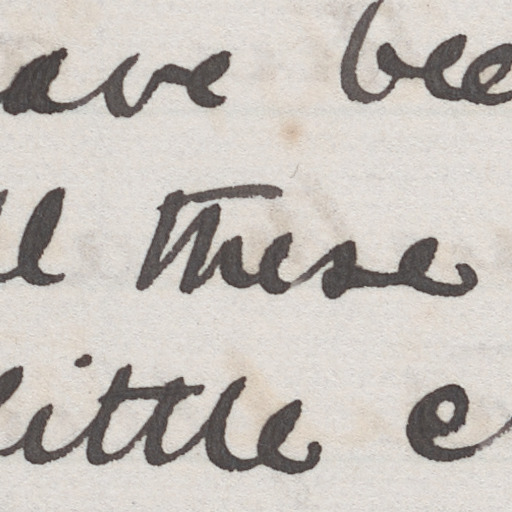 ave bee
l these
little e